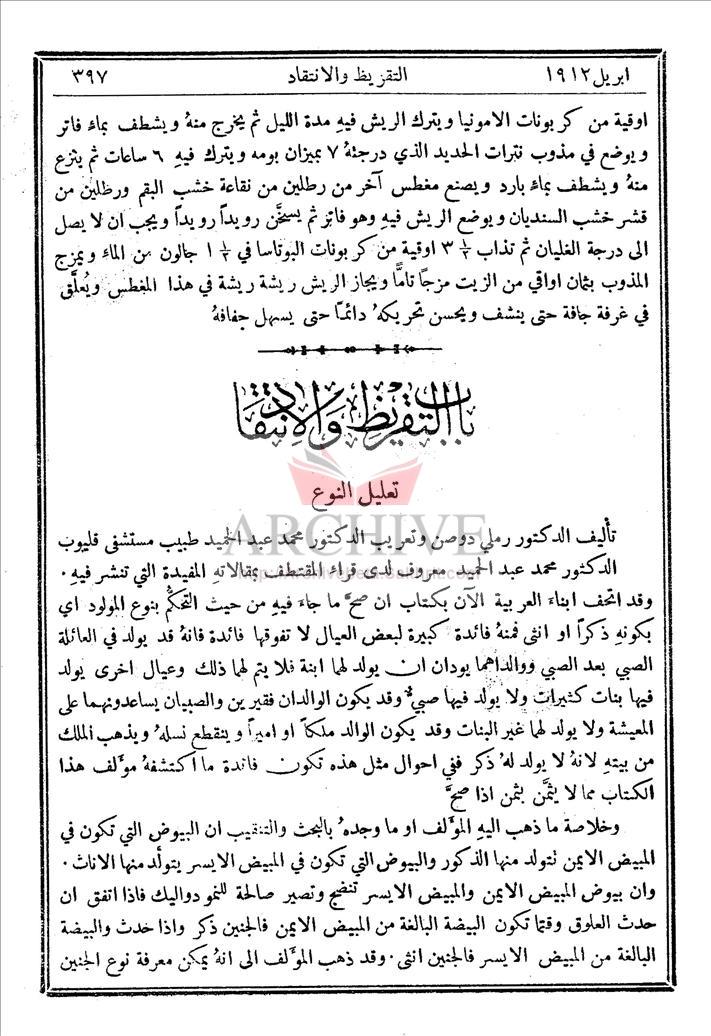 ابريل ١٩١٢ التقريظ والانتقاد ٣٩٧
اوقية من كربونات الامونيا ويترك الريش فيهِ مدة الليل ثم يخرج منهُ ويشطف بماء فاتر
ويوضع في مذوب نترات الحديد الذي درجتهُ ٧ بميزان بومه ويترك فيهِ ٦ ساعات ثم ينزع
منهُ ويشطف بماء بارد ويصنع مغطس آخر من رطلين من نقاعة خشب البقم ورطلين من
قشر خشب السنديان ويوضع الريش فيهِ وهو فاتر ثم يسخَّن رويداً رويداً ويجب ان لا يصل
الى درجة الغليان ثم تذاب ٣ اوقية من كربونات البوتاسا في ١ جالون من الماء ويمزج
المذوب بثمان اواقي من الزيت مزجاً تامًّا ويجاز الريش ريشة ريشة في هذا المغطس ويُعلَّق
في غرفة جافة حتى ينشف ويحسن تحريكهُ دائماً حتى يسهل جفافهُ
باب التقريظ والانتقاد
تعليل النوع
ARCHIVE
تأليف الدكتور رملي دوصن وتعريب الدكتور محمد عبد الحميد طبيب مستشفى قليوب
الدكتور محمد عبد الحميد معروف لدى قراء المقتطف بمقالاتهِ المفيدة التي تنشر فيهِ ٠
وقد اتحف ابناء العربية الآن بكتاب ان صحَّ ما جاءَ فيهِ من حيث التحكُّم بنوع المولود اي
بكونهِ ذكراً او انثى فمنهُ فائدة كبيرة لبعض العيال لا تفوقها فائدة فانهُ قد يولد في العائلة
الصبي بعد الصبي ووالداهما يودان ان يولد لهما ابنة فلا يتم لهما ذلك وعيال اخرى يولد
فيها بنات كثيرات ولا يولد فيها صبيٌّ وقد يكون الوالدان فقيرين والصبيان يساعدونهما على
المعيشة ولا يولد لهما غير البنات وقد يكون الوالد ملكاً او اميراً وينقطع نسلهُ ويذهب الملك
من بيتهِ لانهُ لا يولد لهُ ذكر ففي احوال مثل هذه تكون فائدة ما اكتشفهُ مؤلف هذا
الكتاب مما لا يثمَّن بثمن اذا صحَّ
وخلاصة ما ذهب اليهِ المؤلف او ما وجدهُ بالبحث والتنقيب ان البيوض التي تكون في
المبيض الايمن تتولد منها الذكور والبيوض التي تكون في المبيض الايسر يتولَّد منها الاناث ٠
وان بيوض المبيض الايمن والمبيض الايسر تنضج وتصير صالحة للنمو دواليك فاذا اتفق ان
حدث العلوق وقتما تكون البيضة البالغة من المبيض الايمن فالجنين ذكر واذا حدث والبيضة
البالغة من المبيض الايسر فالجنين انثى ٠ وقد ذهب المؤلف الى انهُ يمكن معرفة نوع الجنين